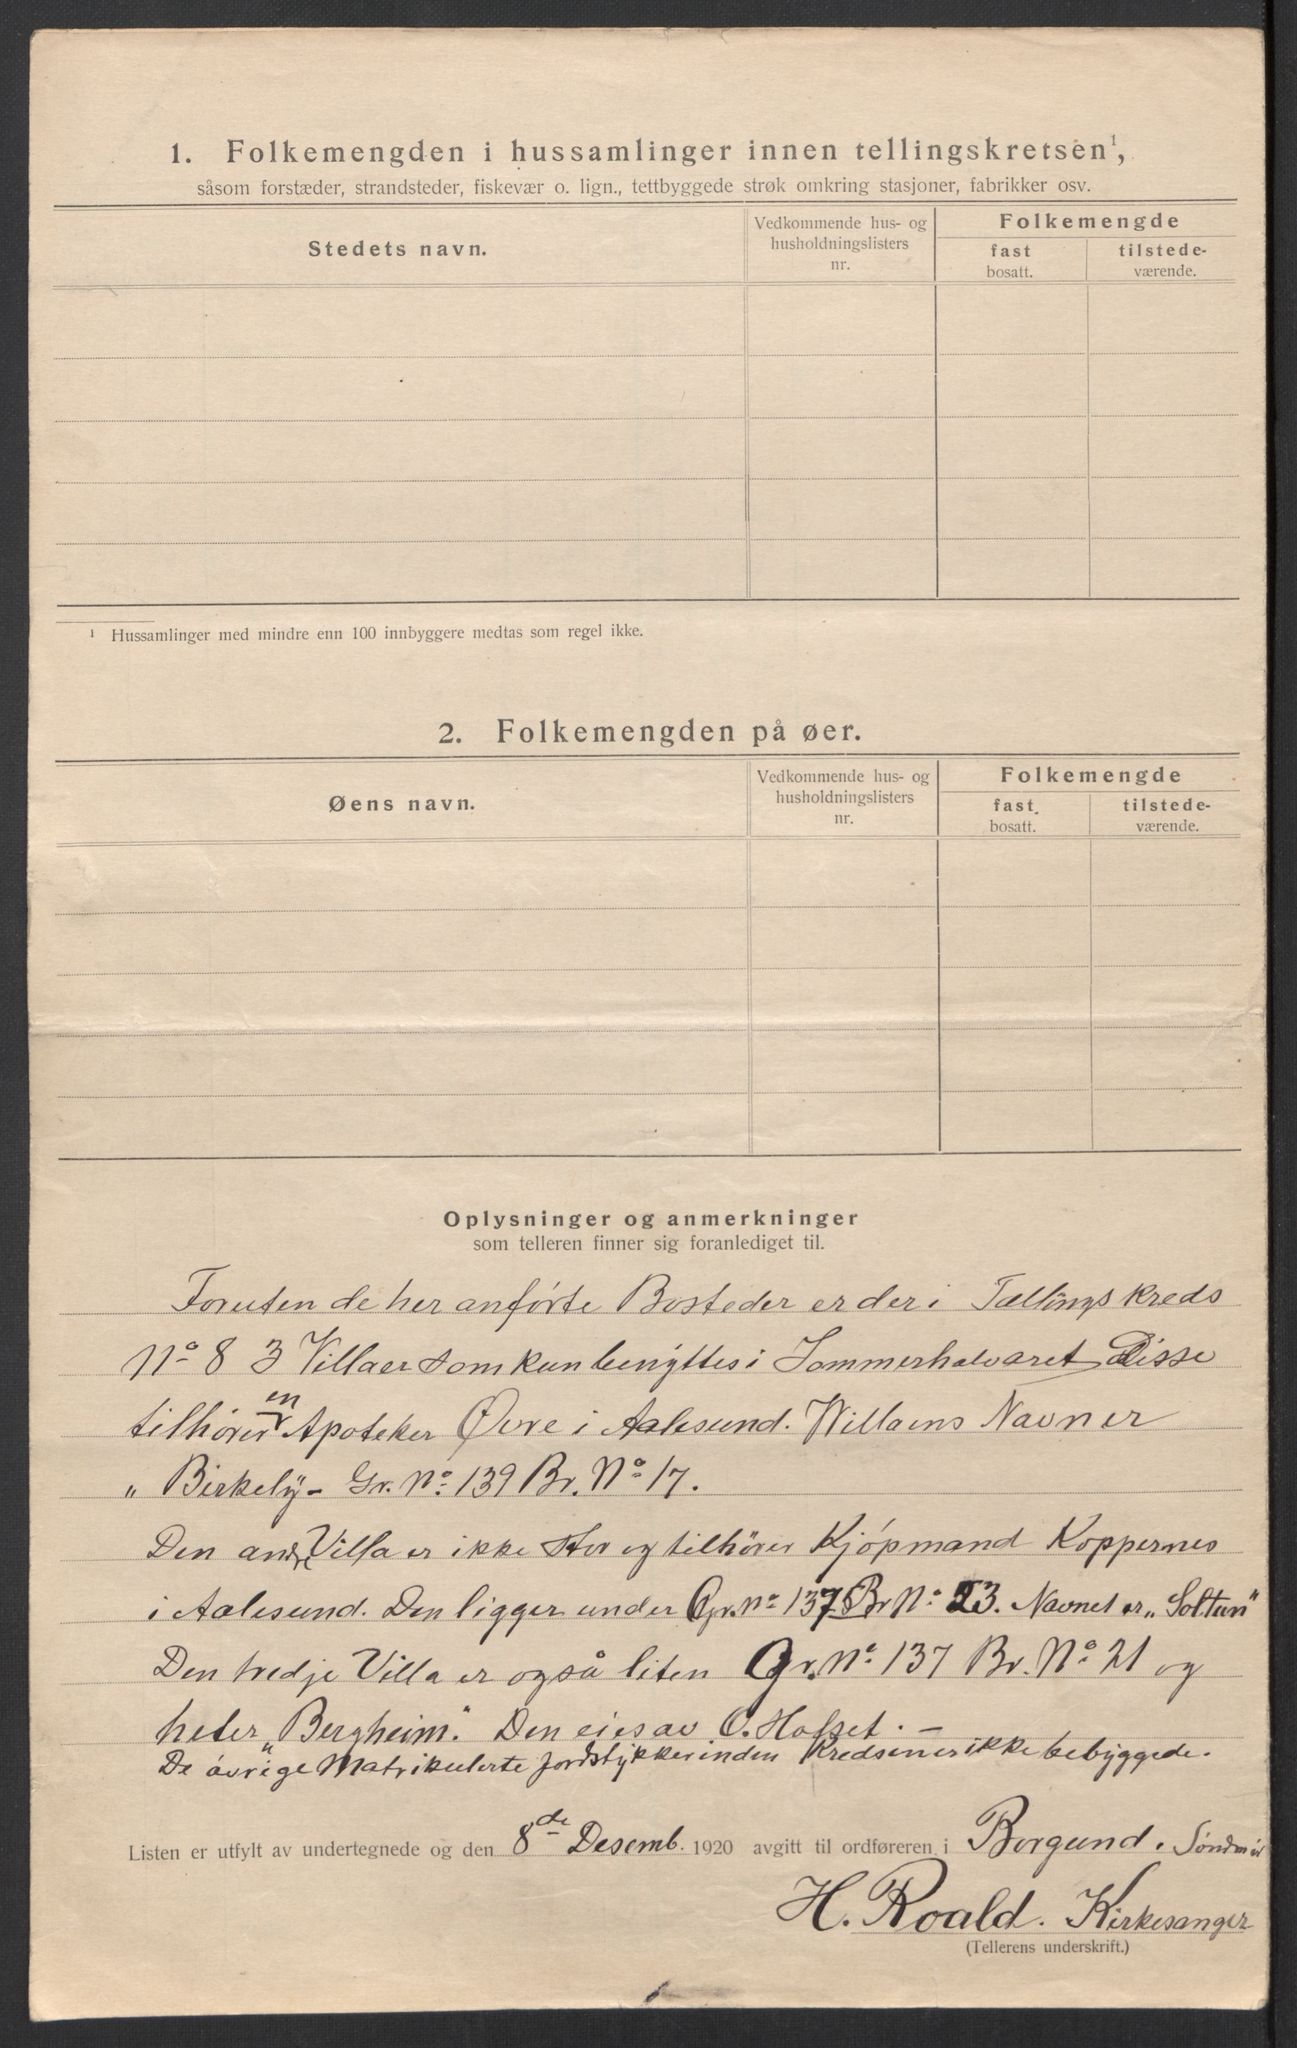 1. Folkemengden i hussamlinger innen tellingskretsen¹,
såsom forstæder, strandsteder, fiskevær o. lign., tettbyggede strøk omkring stasjoner, fabrikker osv.
Stedets navn.
Vedkommende hus- og
husholdningslisters
nr.
Folkemengde
fast
bosatt.
tilstede-
værende.
¹ Hussamlinger med mindre enn 100 innbyggere medtas som regel ikke.
2. Folkemengden på øer.
Øens navn.
Vedkommende hus- og
husholdningslisters
nr.
Folkemengde
fast
bosatt.
tilstede-
værende.
Oplysninger og anmerkninger
som telleren finner sig foranlediget til.
Foruten de her anførte Bosteder er der i Tællingskreds
No 8 3 Villaer som kun benyttes i Sommerhalvaret Disse
en
tilhører Apoteker Øvre i Aalesund. Villaens Navn er
„ Birkely - Gr. No 139 Br. No 17.
Den andre Villa er ikke stor og tilhører Kjøpmand Koppernes
i Aalesund. Den ligger under Gr. no 137 Br No 23. Navnet er „Soltun"
Den tredje Villa er også liten Gr. No 137 Br. No 21 og
heter „Bergheim." Den eies av O. Hofset. —
De øvrige Matrikulerte Jordstykker inden Kredsen er ikke bebyggede.
Listen er utfylt av undertegnede og den 8de Desemb. 1920 avgitt til ordføreren i Borgund. Søndmør
H. Roald. Kirkesanger
(Tellerens underskrift.)